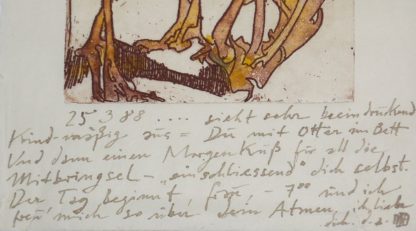 25 3 88 .... sieht sehr beeindruckend
Kind-mäßig aus = Du mit Otter im Bett
Und dann einen Morgenkuß für all die
Mitbringsel - "einschliessend" dich selbst.
Der Tag beginnt, - 7⁰⁰ und ich
freu' mich so über dein Atmen, ich liebe
dich.